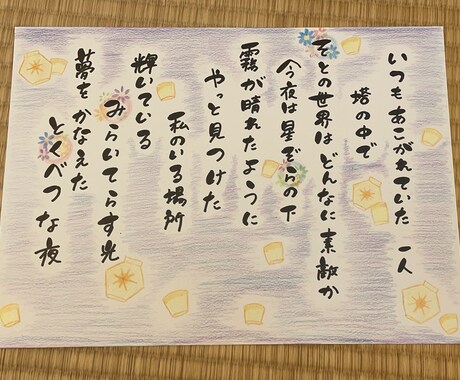 いつもあこがれていた 一人
塔の中で
そとの世界はどんなに素敵か
今夜は星ぞらの下
霧が晴れたように
やっと見つけた
私のいる場所
輝いている
みらいてらす光
夢をかなえた
とくべつな夜